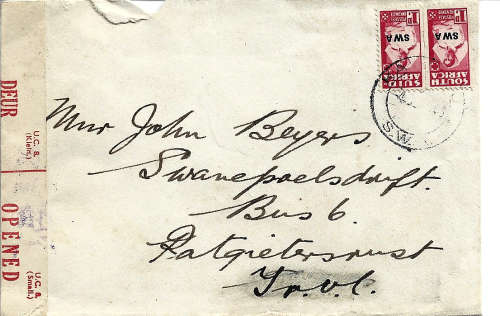 Mnr John Beyers
Swanepoelsdrift.
Bus 6.
Potgietersrust
Tvl.
DEUR
OPENED
U.C. 8.
(Klein.)
U.C. 8.
(Small.)
SWA
SWA
SUID-
AFRIKA
SOUTH
AFRICA
S.W.